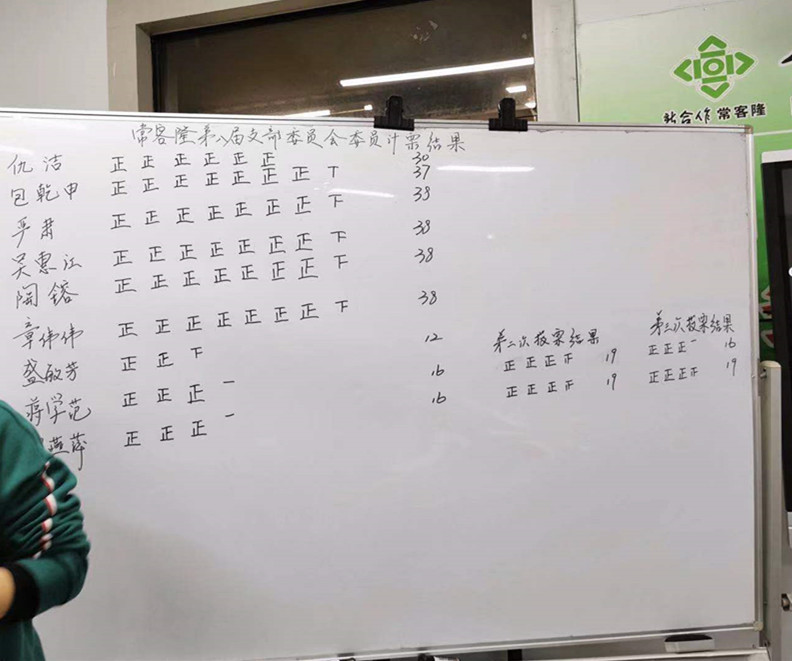 新合作 常客隆
常客隆第八届支部委员会委员计票结果
仇洁 正 正 正 正 正 正 30
包乾甲 正 正 正 正 正 正 正 T 37
严肃 正 正 正 正 正 正 正 下 38
吴惠江 正 正 正 正 正 正 正 下 38
陶镕 正 正 正 正 正 正 正 下 38
章伟伟 正 正 正 正 正 正 正 下 38
盛敏芳 正 正 下 12 第二次投票结果 第三次投票结果
蒋学范 正 正 正 一 16 正 正 正 正 19 正 正 正 一 16
燕萍 正 正 正 一 16 正 正 正 正 19 正 正 正 正 19